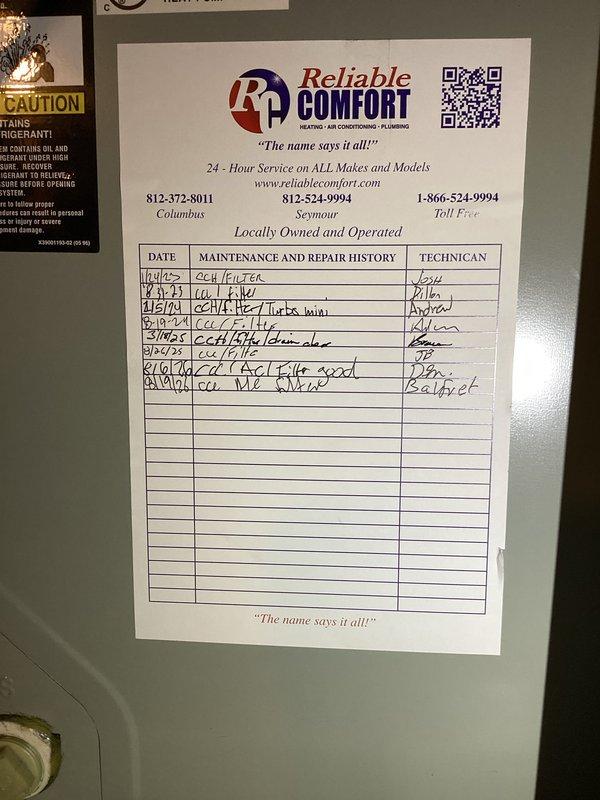 HEAT PUMP
C
CAUTION
NTAINS
RIGERANT!
EM CONTAINS OIL AND
IGERANT UNDER HIGH
SURE. RECOVER
IGERANT TO RELIEVE
SURE BEFORE OPENING
SYSTEM.
re to follow proper
edures can result in personal
ss or injury or severe
pment damage.
X39001193-02 (05 95)
RC
Reliable
COMFORT
HEATING • AIR CONDITIONING • PLUMBING
"The name says it all!"
24 - Hour Service on ALL Makes and Models
www.reliablecomfort.com
812-372-8011 812-524-9994 1-866-524-9994
Columbus Seymour Toll Free
Locally Owned and Operated
DATE MAINTENANCE AND REPAIR HISTORY TECHNICIAN
1/24/23 CCH/FILTER JOSH
8-31-23 cc/ filter Dillon
2/5/24 CCH/filter/Turbo mini Andrew
8-19-24 CC/Filter
3/18/25 CCH/filter/drain
8/26/25 cc/Filte JB
8/6/26 CC/AC/Filter good
8/19/26 cc
"The name says it all!"